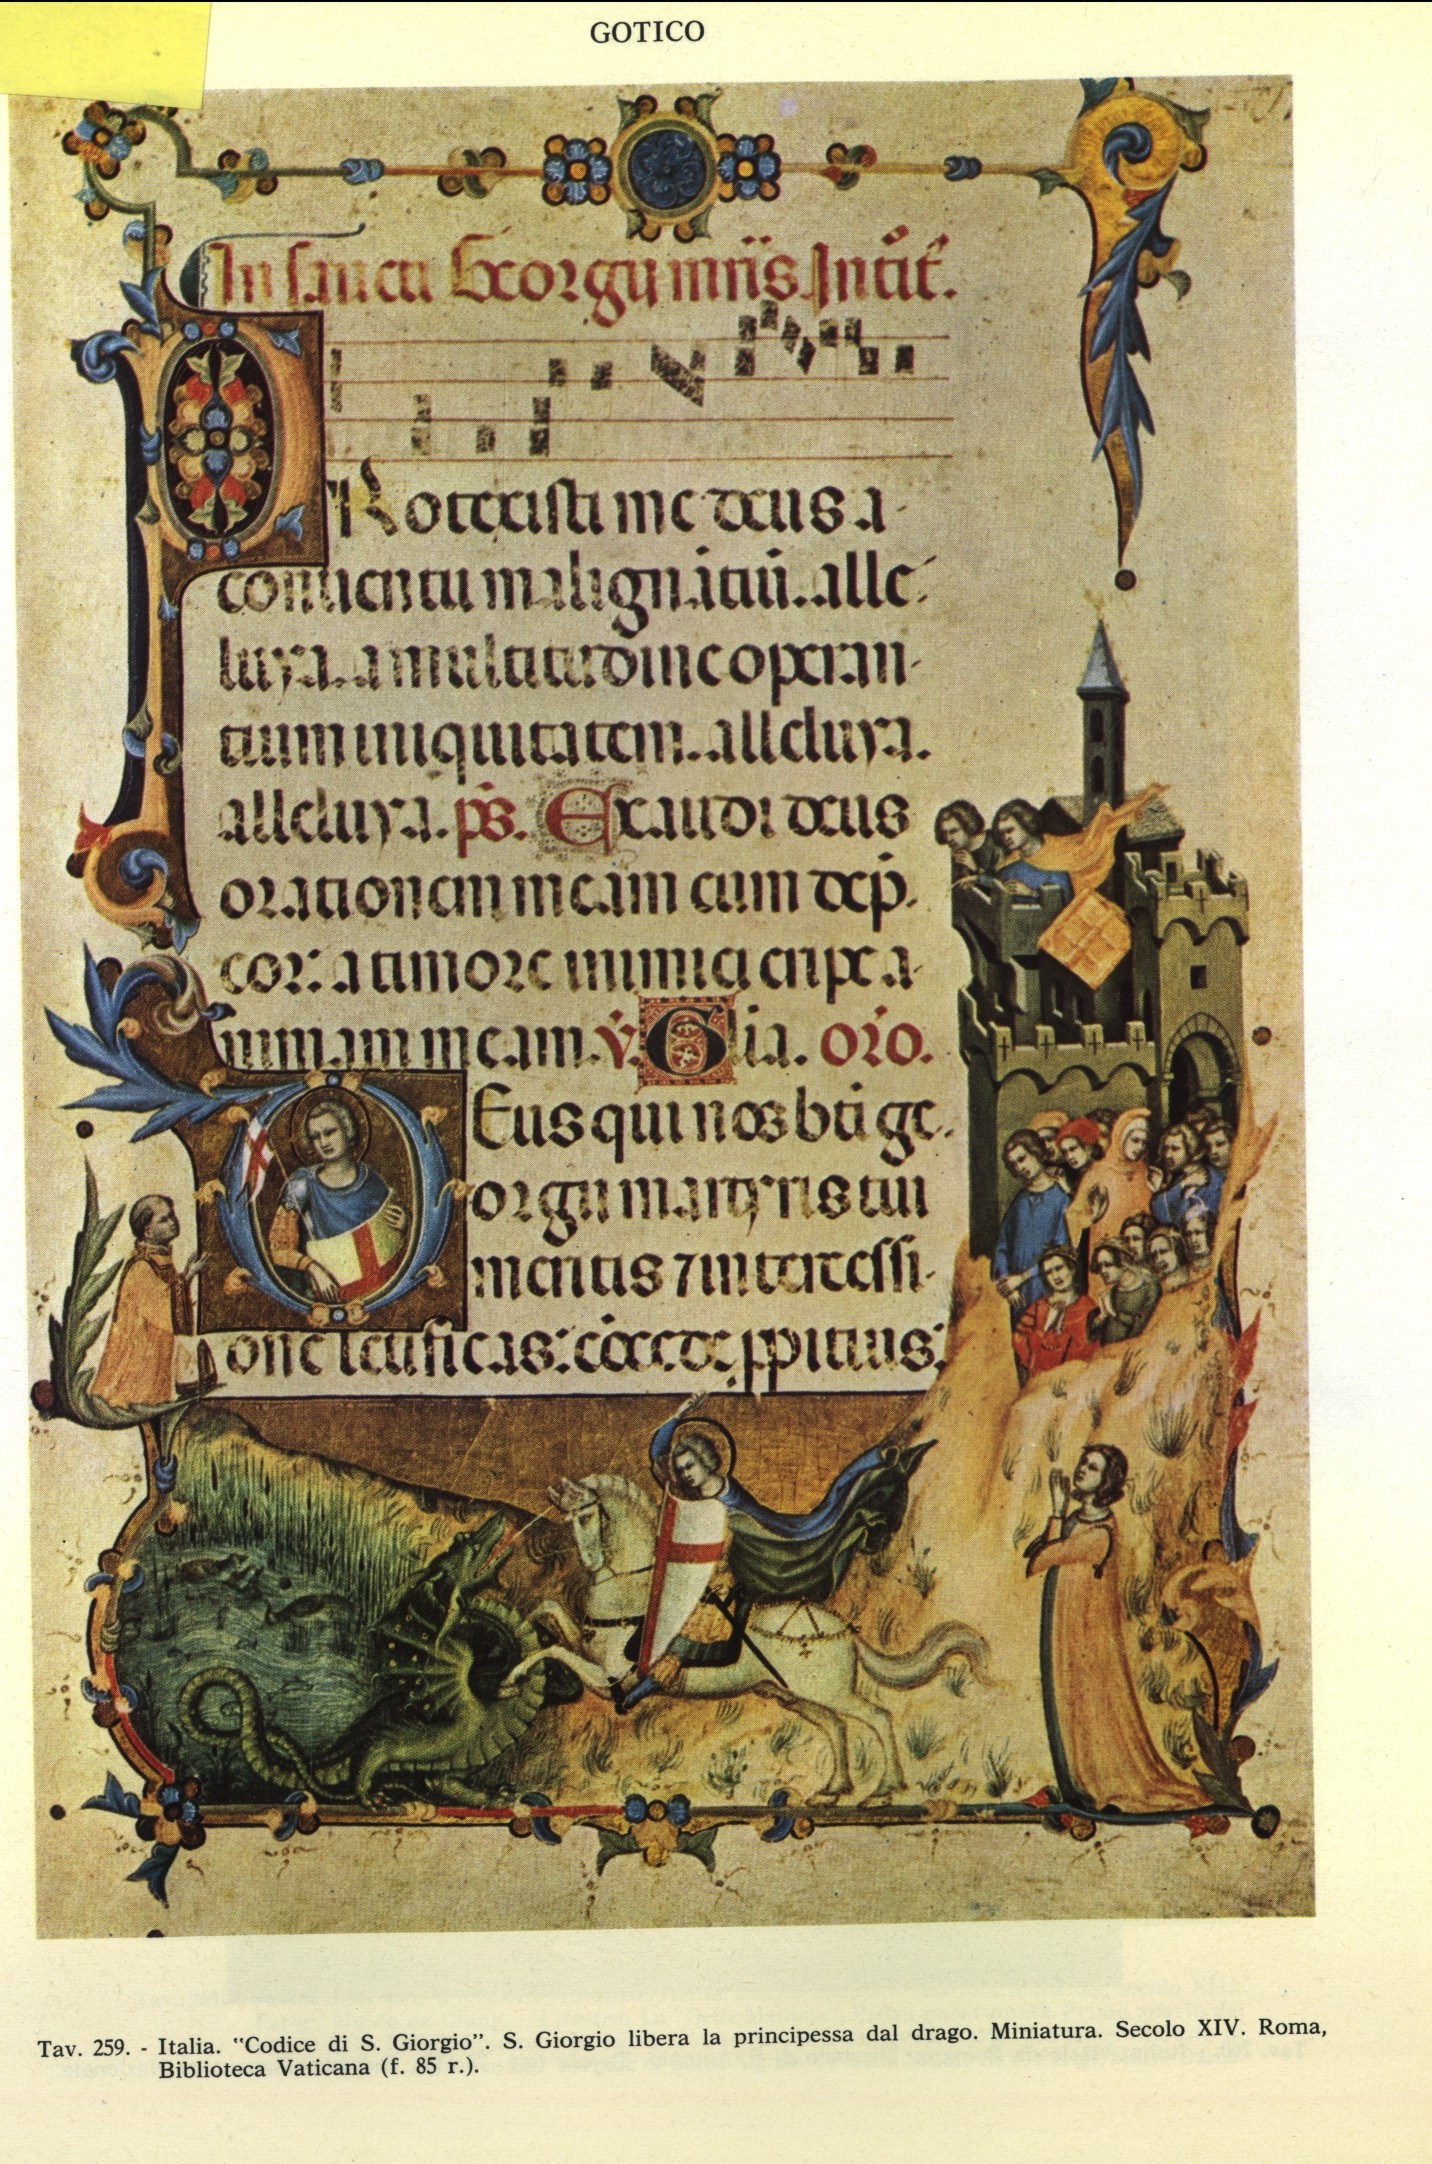 GOTICO
In sancti Georgii mris. Introit.
Rotexisti me deus a
conuentu malignãtiũ. alle
luya. a multitudine operan
tium iniquitatem. alleluya.
alleluya. ps. Exaudi deus
orationem meam cum dep̃
cor: a timore inimici eripe a
nimam meam. v̾. Glia. oro.
Eus qui nos bti ge
orgii martyris tui
meritis ⁊ intercessi
one letificas: cõcede ppitius:
Tav. 259. - Italia. "Codice di S. Giorgio". S. Giorgio libera la principessa dal drago. Miniatura. Secolo XIV. Roma,
Biblioteca Vaticana (f. 85 r.).